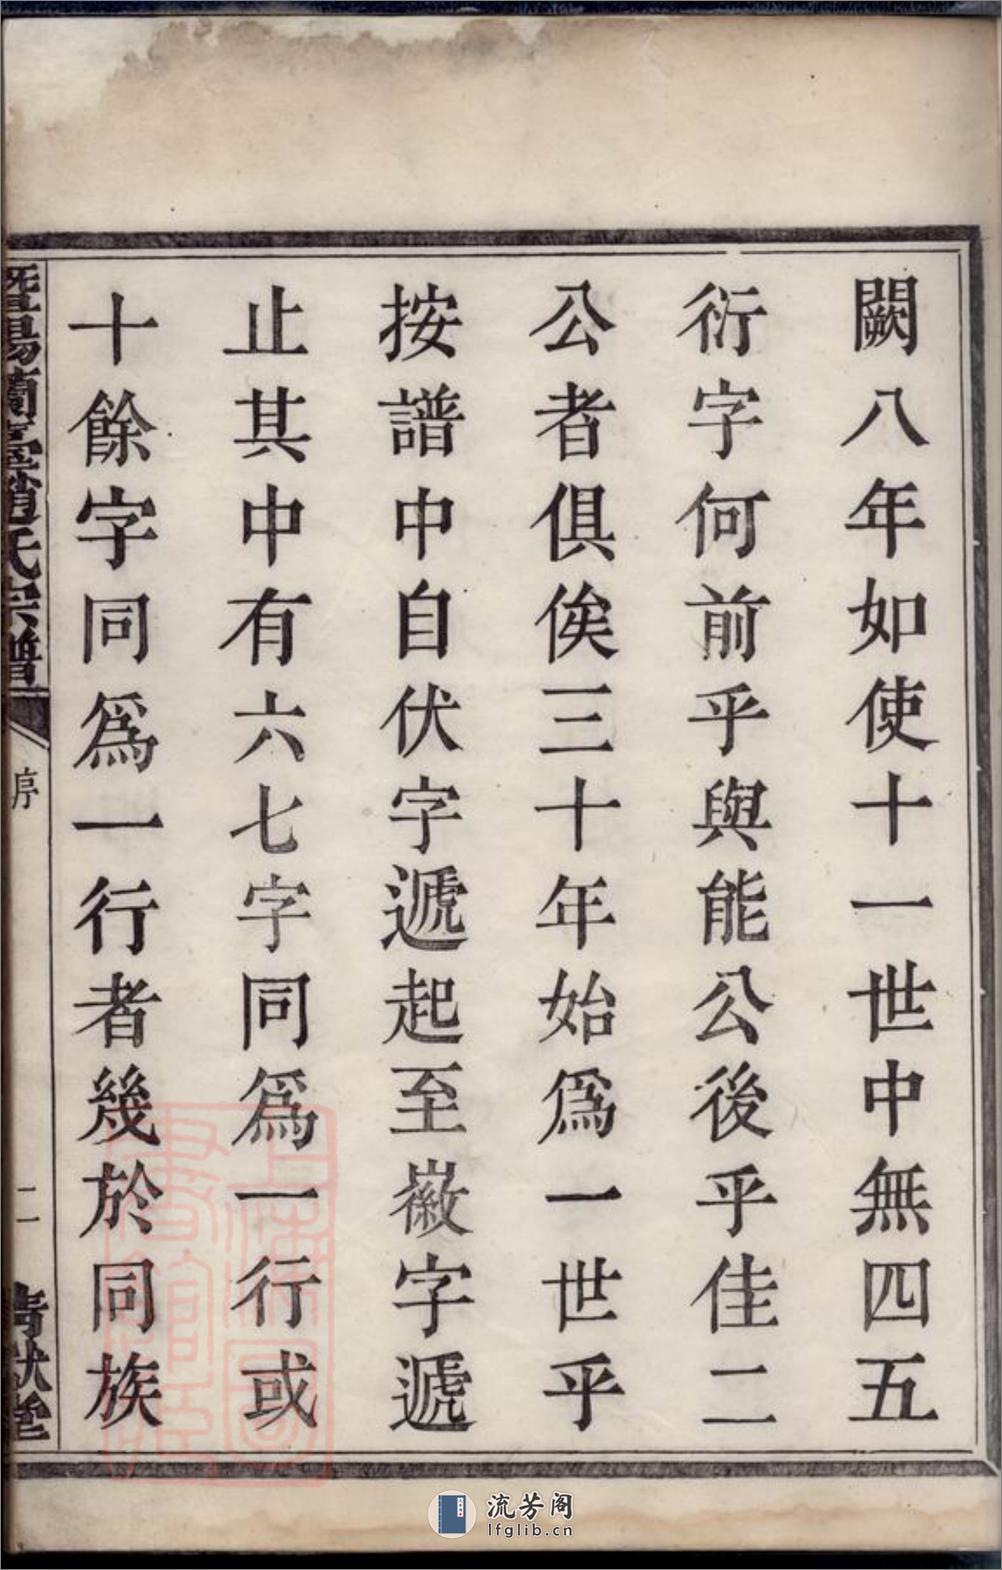 闕八年如使十一世中無四五
衍字何前乎與能公後乎佳二
公者俱俟三十年始為一世乎
按譜中自伏字遞起至徽字遞
止其中有六七字同為一行或
十餘字同為一行者幾於同族
暨陽蘭臺趙氏宗譜
序
二
清獻堂
流芳阁
lfglib.cn